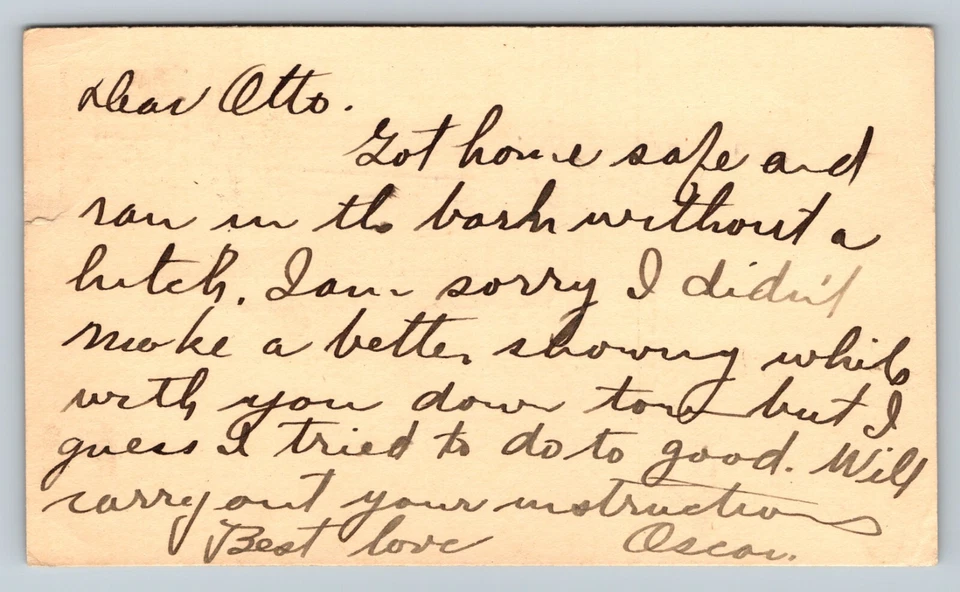 Dear Otto.
Got home safe and
ran in the bank without a
hitch. I am sorry I didn't
make a better showing while
with you down town but I
guess I tried to do to good. Will
carry out your instructions
Best love Oscar.